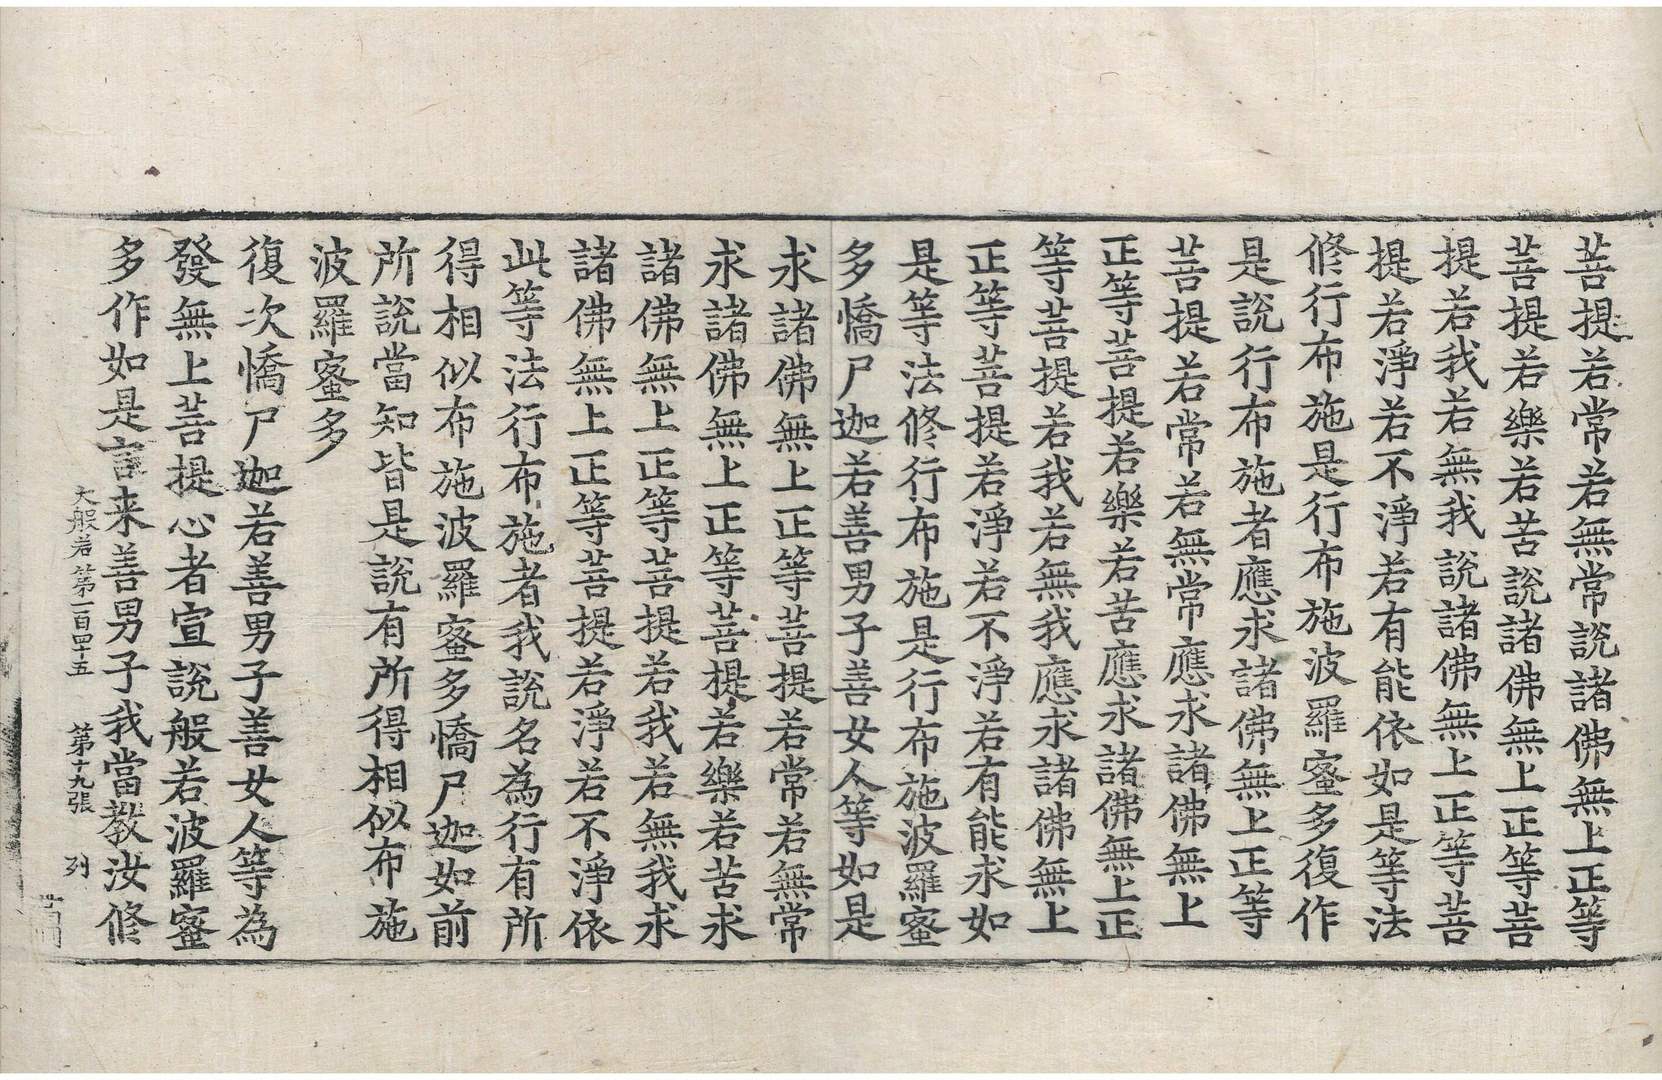 菩提若常若無常說諸佛無上正等
菩提若樂若苦說諸佛無上正等菩
提若我若無我說諸佛無上正等菩
提若淨若不淨若有能依如是等法
修行布施是行布施波羅蜜多復作
是說行布施者應求諸佛無上正等
菩提若常若無常應求諸佛無上
正等菩提若樂若苦應求諸佛無上正
等菩提若我若無我應求諸佛無上
正等菩提若淨若不淨若有能求如
是等法修行布施是行布施波羅蜜
多憍尸迦若善男子善女人等如是
求諸佛無上正等菩提若常若無常
求諸佛無上正等菩提若樂若苦求
諸佛無上正等菩提若我若無我求
諸佛無上正等菩提若淨若不淨依
此等法行布施者我說名為行有所
得相似布施波羅蜜多憍尸迦如前
所說當知皆是說有所得相似布施
波羅蜜多
復次憍尸迦若善男子善女人等為
發無上菩提心者宣說般若波羅蜜
多作如是言来善男子我當教汝修
大般若第一百四十五 第十九張 列